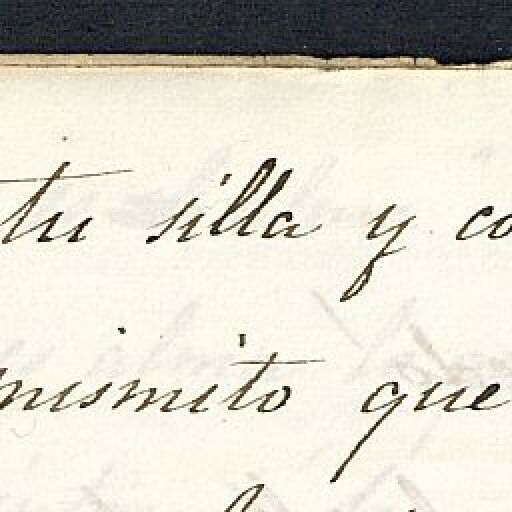 tu silla y co
mismito que